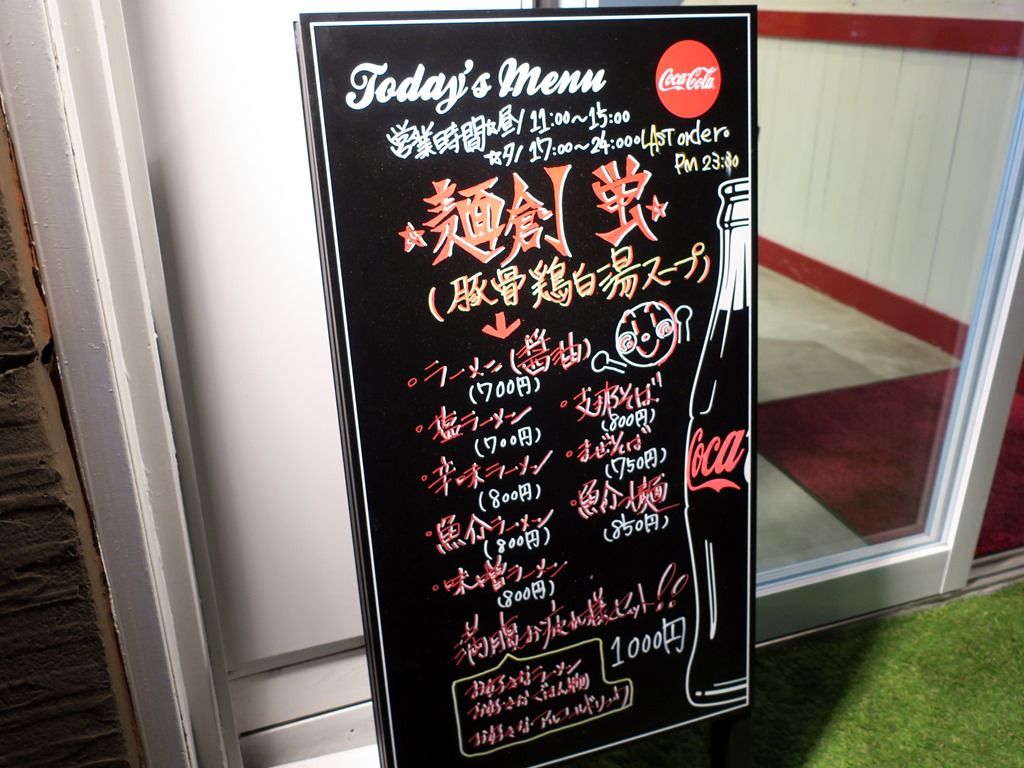 Today's Menu
Coca-Cola
営業時間☆昼/ 11:00〜15:00
☆夕/ 17:00〜24:00 LAST order。
PM 23:30
☆麺創 蛍☆
(豚骨鶏白湯スープ)
↓
。ラーメン(醤油)
(700円)
。塩ラーメン
(700円)
。辛味ラーメン
(800円)
。魚介ラーメン
(800円)
。味噌ラーメン
(800円)
。支那そば
(800円)
。まぜそば
(750円)
。魚介つけ麺
(850円)
Coca
満腹お疲れ様セット!!
1000円
お好きなラーメン
お好きなごはん
お好きなアルコールドリンク